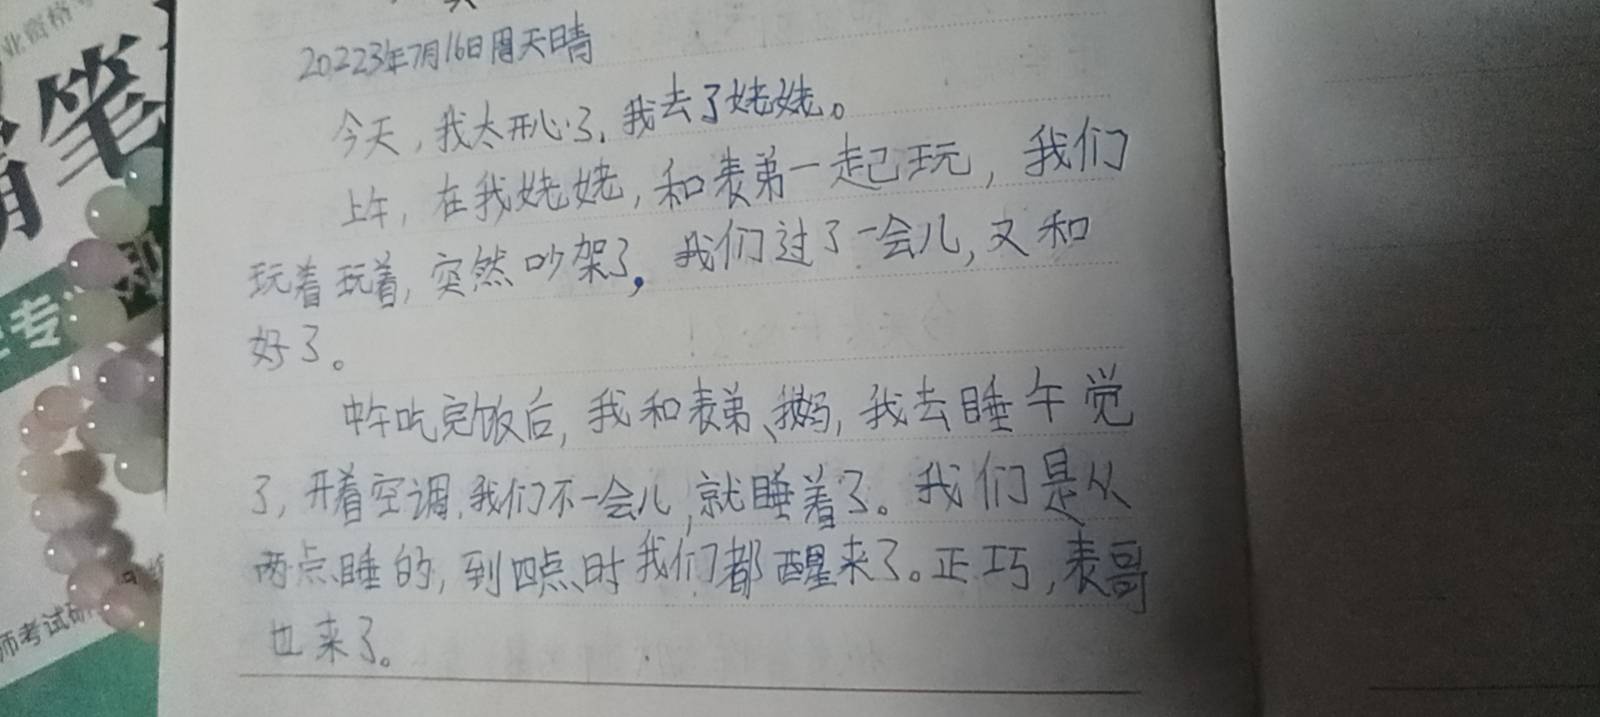 业资格考
笔
专
师考试研
20223年7月16日周天晴
今天，我太开心了，我去了姥姥。
上午，在我姥姥，和表弟一起玩，我们
玩着玩着，突然吵架了，我们过了一会儿，又和
好了。
中午吃完饭后，我和表弟、我妈，我去睡午觉
了，开着空调，我们不一会儿，就睡着了。我们是从
两点睡的，到四点时我们都醒来了。正巧，表哥
也来了。